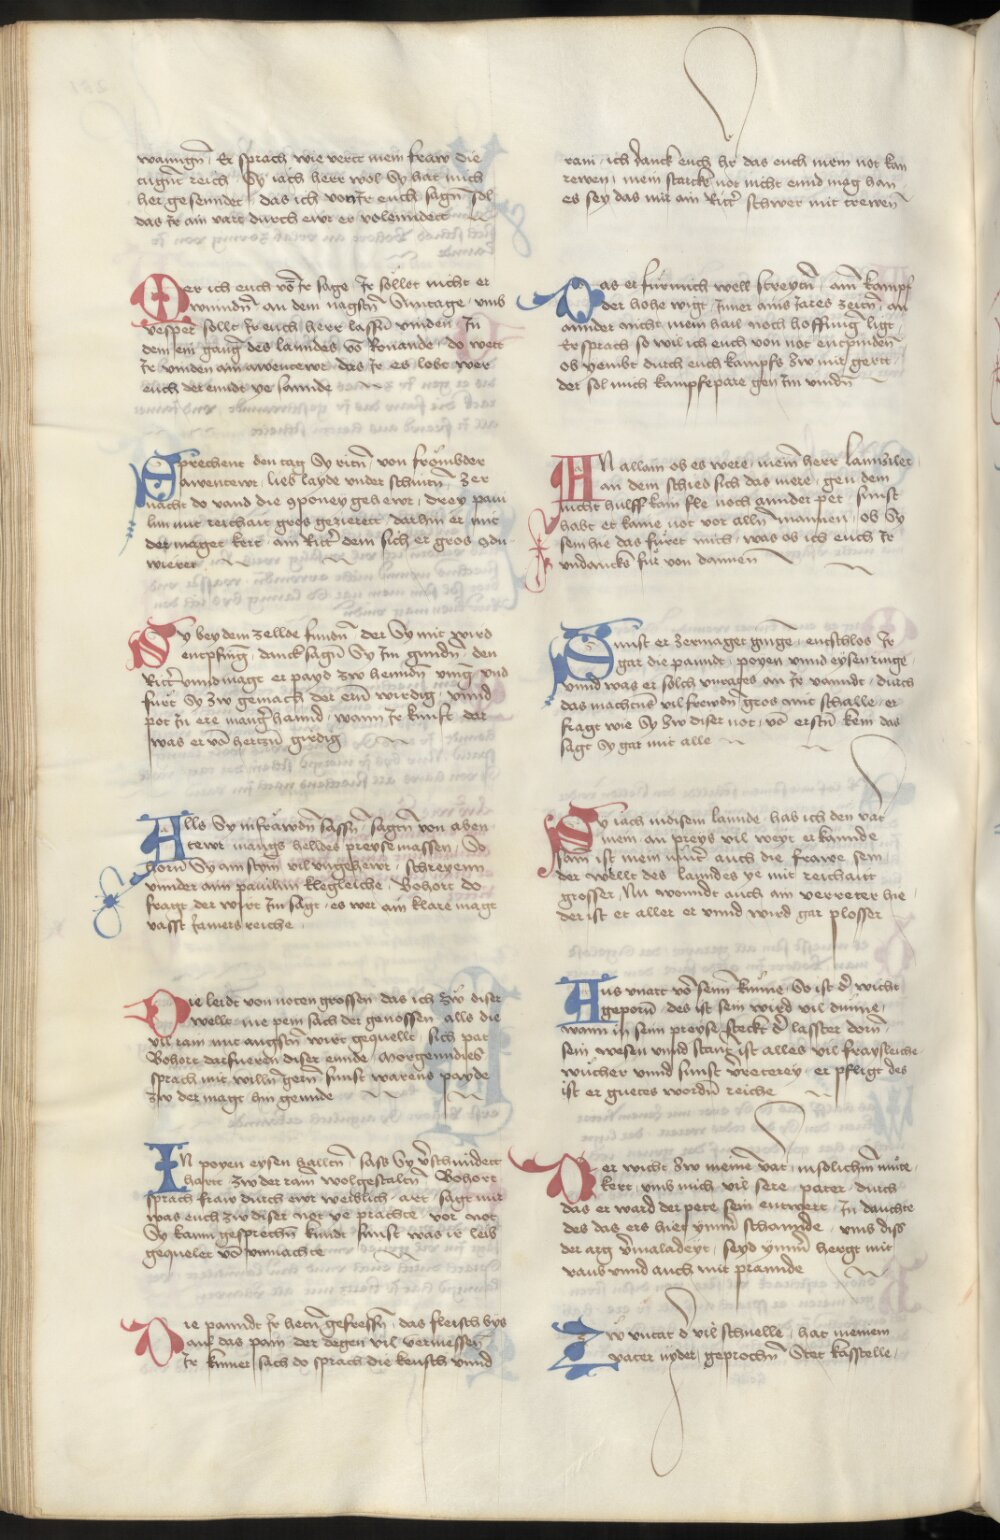 wanngn̄ · Er sprach wie vert mein fraw die
tugn̄t reich · Sy iach herr wol Sy hat mich
her gesenndet · das ich von Jr euch sagn̄ sol
das Jr ain vart durch ewr er volenndett
Der ich euch vō Jr sage · Jr sollet nicht er
wınndn̄ · an dem nagstn̄ Sunntage · vmb
vesper sollt Jr euch herr lassn̄ vinden Jn
dem ein gang des lanndes vō Rouande · do wert
Jr vinden ain awentewr · das Jr es lobt wer
euch der ennde ye sannde
Sprechent den tag Sy ritn̄ · von frömbder
awentewr · lieb layde vnder schnitn̄ · Zer
nacht do vand die 9poney gehewr · drey pauı
lun mit reichait gros gezieret · darhin er mit
der maget kert · ain Ritt̄ dem sich er gros 9du
wieret
Sy bey dem zellde funndn̄ · der Sy mit wird
entpfinḡ · danck sagn̄ Sy Jm gundn̄ · den
Rittr̄ vnnd magt er payd zw henndn̄ vinḡ · vnd
furt Sy zw gemach der ern̄ wirdig · vnnd
pot Jn ere manḡ hannd · wann Jr kunft dar
was er vō hertzn̄ girdig
Alls Sy in fräwdn̄ sassn̄ · sagtn̄ von aben
tewr mangs helldes preyse massen · So
horn̄ Sy ain stym vil vngehewr · schreyenn
vnnder ainn pauilun klegleiche · Bohort do
fragt der wirt Jm sagt · es wer ain klare magt
vasst Jamers reiche
Die leidt von noten grossen · das ich zw diser
wellt · nie pein sach der genossen · alls die
vil rain mit angstn̄ wirt gequellt · sich pat
Bohort darfuern diser ennde · Morgennndies
sprach mit willn̄ gern̄ · sunst warens payde
zw der magt hin gennde
In poyen eysen halltn̄ · sass Sy v̄schmidett
hart · zw der rain̄ wolgestaltn̄ · Bohort
sprach fraw durch ewr weiblich art · sagt mir
was euch zw diser not ye prachte · vor not
Sy kawm gesprechn̄ kundt · sunst was ir leib
gequelet vō vnmachte
Die panndt Jr hetn̄ gefressn̄ · das fleisch bys
auf das pain · der degen vil vermessen
Jr kumer sach do sprach die keusch vnnd
rain · ich danck euch hr das euch mein not kan
rewen · mein starcke not nicht ennd mag han
es sey das mir ain Ritt̄ schwer mit trewen
Das er fur mich well streytn̄ · ainn kampf
der hohe wigt · Jnner ains Jares zeitn̄ · an
annder nicht mein hail noch hoffnunḡ ligt ·
Er sprach so wil ich euch von not entpinden
ob yembt durch euch kampfs zw mir gertt
der sol mich kampfepare gen Jm vindn̄
An allain ob es were · mein herr Lannzilet
an dem schied sich das mere · gen dem
nicht hulff kain fle noch annder pet · sunst
habt er kaine not vor alln̄ mannen · ob Sy
sein hie das furet mich · was ob ich euch Jr
vndancks fur von dannen
Sunst er zermaget gienge · entschlos Jr
gar die panndt · poyen vnnd eysen ringe ·
vnnd was er solch vnrates an Jr vanndt · durch
das machtn̄s vil frewdn̄ gros mit schalle · er
fragt wie Sy zw diser not · vō erstn̄ kem das
sagt Sy gar mit alle
Sy iach in disem lannde · hab ich den vatr̄
mein an preys vil weyt erkannde
sam ist mein mutr̄ auch die frawe sein
der wellt des lanndes ye mit reichait
grosser · Nu wonndt auch ain verreter hie
der ist et aller er vnnd wird gar plosser
Aus vnart vō seinn̄ künne · So ist d̄ wicht
geporn̄ · des ist sein wird vil dünne ·
wann in seinn preyse steckt d̄ lasster dorn̄ ·
sein wesen vnnd stant ist alles vil frayssleiche
wücher vnnd sunst v̄reterey · er pfligt des
ist er guetes wordn̄ reiche
Der wicht zw meine vatr̄ · in solichm̄ mute ·
kert · vmb mich vil sere pater · durch
das er ward der pete sein entwert · Jn dauchte
des das ers hiet ymm̄ schannde · vmb diss
der arg v̄maladeyt · seyd ymm̄ hergt mit
raub vnnd auch mit prannde
Zw vntat d̄ vil schnelle · hat meinem
vater nyder geprochn̄ Stet kasstelle ·